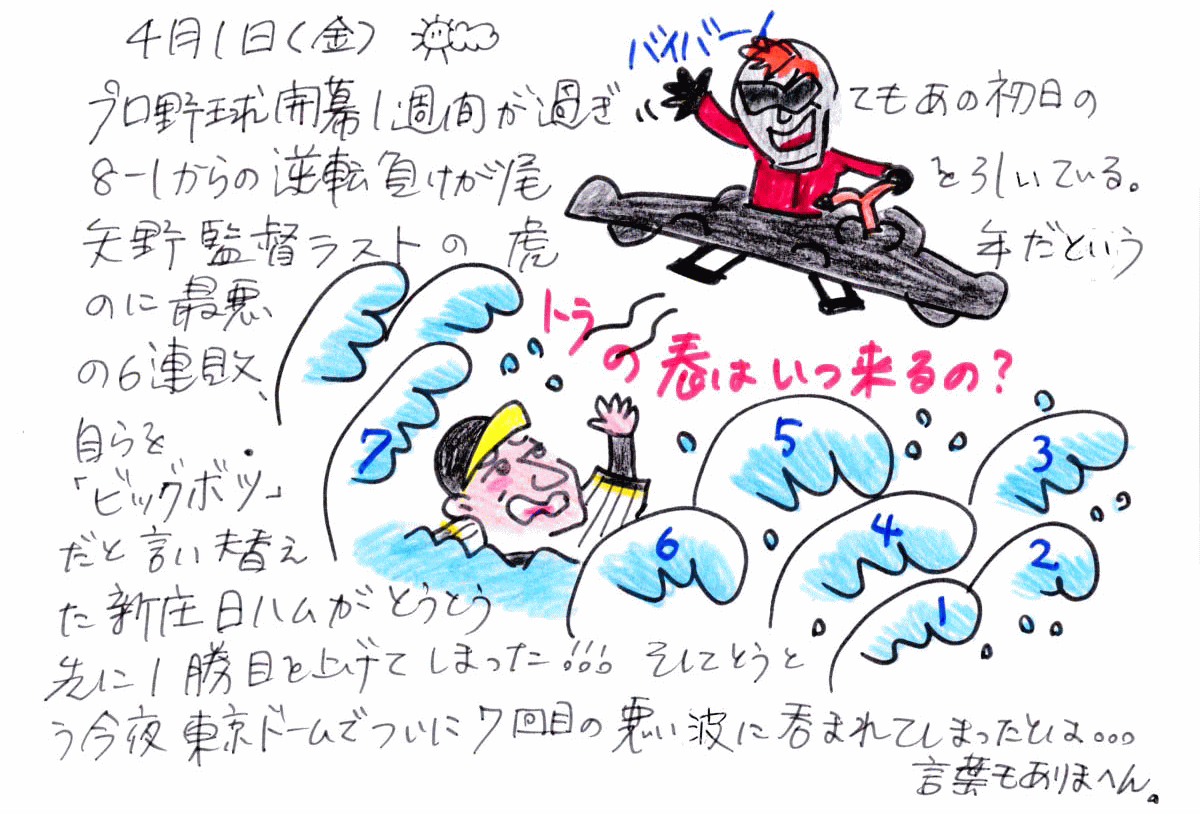 4月1日(金)
バイバーイ
プロ野球開幕1週間が過ぎてもあの初日の
8-1からの逆転負けが尾を引いている。
矢野監督ラストの虎年だという
のに最悪
の6連敗、
トラの春はいつ来るの?
自らを
「ビッグボツ」
だと言い替え
た新庄日ハムがとうとう
先に1勝目を上げてしまった!!! そしてとうと
う今夜東京ドームでついに7回目の悪い波に呑まれてしまったとは。。。
言葉もありまへん。
7
5
3
6
4
2
1